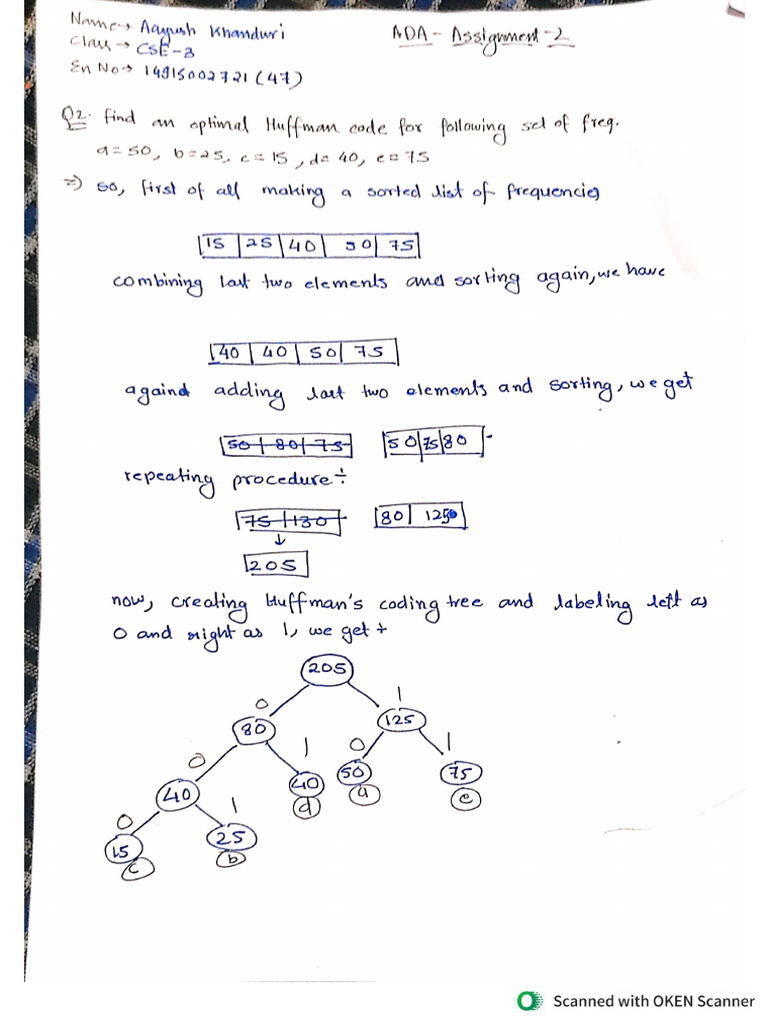 Name → Aayush Khanduri
ADA - Assignment - 2
Class → CSE-3
En No → 14915002721 (47)
Q2. Find an optimal Huffman code for following set of freq.
a = 50, b = 25, c = 15, d = 40, e = 75
=) so, first of all making a sorted list of frequencies
15 | 25 | 40 | 50 | 75
combining last two elements and sorting again, we have
40 | 40 | 50 | 75
againd adding last two elements and sorting, we get
50 | 80 | 75 50 | 75 | 80
repeating procedure ÷
75 | 130 80 | 125
↓
205
now, creating Huffman's coding tree and labeling left as
0 and right as 1, we get ÷
205
0 1
80 125
0 1 0 1
40 40 50 75
d a e
0 1
15 25
c b
Scanned with OKEN Scanner